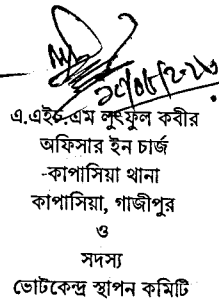 ১৫/০৮/২০২৩
এ.এইচ.এম লুৎফুল কবীর
অফিসার ইন চার্জ
-কাপাসিয়া থানা
কাপাসিয়া, গাজীপুর
ও
সদস্য
ভোটকেন্দ্র স্থাপন কমিটি